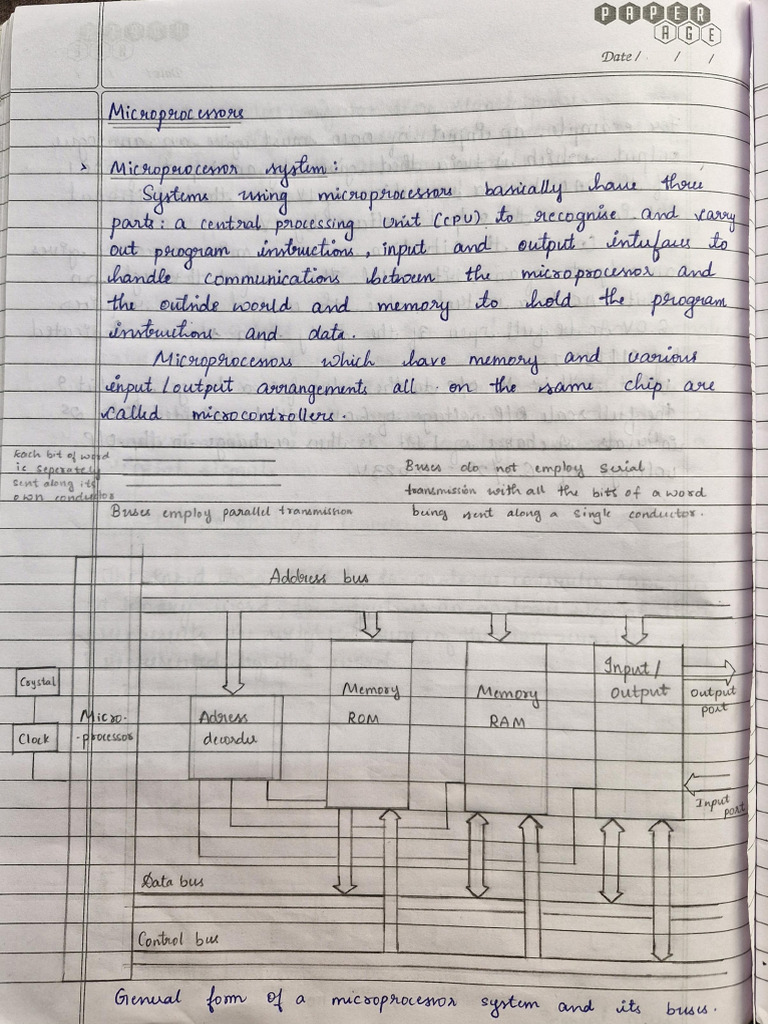 PAPER
AGE
Date / / /
Microprocessors
> Microprocessor system :
Systems using microprocessors basically have three
parts : a central processing unit (CPU) to recognise and carry
out program instructions , input and output interfaces to
handle communications between the microprocessor and
the outside world and memory to hold the program
instructions and data.
Microprocessors which have memory and various
input / output arrangements all on the same chip are
called microcontrollers .
Each bit of word
is seperately
sent along its
own conductor
Buses employ parallel transmission
Buses do not employ serial
transmission with all the bits of a word
being sent along a single conductor.
Address bus
Crystal
Clock
Micro-
-processor
Adress
decorder
Memory
ROM
Memory
RAM
Input /
output
output
port
Input
port
Data bus
Control bus
General form of a microprocessor system and its buses.